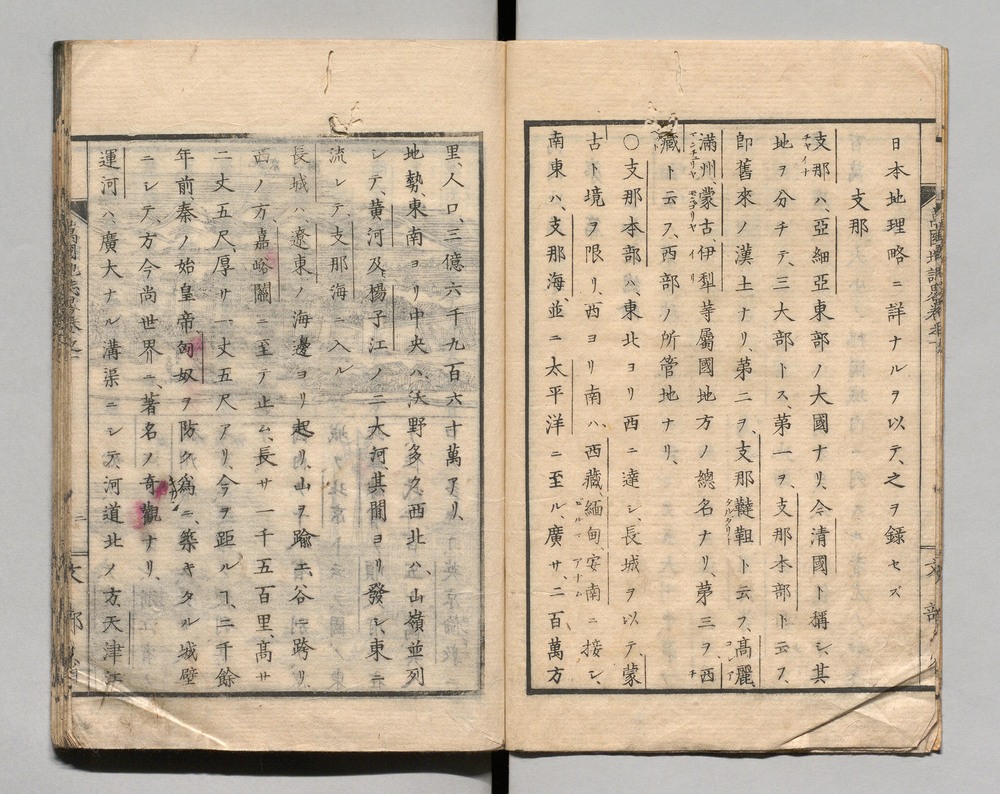 日本地理略ニ詳ナルヲ以テ、之ヲ録セズ
支那
支那ハ、亞細亞東部ノ大國ナリ、今清國ト稱シ、其
地ヲ分チテ、三大部トス、第一ヲ、支那本部ト云フ、
即舊來ノ漢土ナリ、第二ヲ、支那韃靼ト云フ、高麗、
滿州、蒙古伊犁等屬國地方ノ總名ナリ、第三ヲ、西
藏ト云フ、西部ノ所管地ナリ、
〇支那本部ハ、東北ヨリ西ニ達シ、長城ヲ以テ、蒙
古ト境ヲ限リ、西ヨリ南ハ、西藏緬甸、安南ニ接シ、
南東ハ、支那海並ニ太平洋ニ至ル、廣サ、二百萬方
里、人口、三億六千九百六十萬アリ、
地勢、東南ヨリ中央ハ、沃野多ク、西北ハ、山嶺並列
シテ、黄河及楊子江ノ二大河其間ヨリ發シ、東ニ
流レテ、支那海ニ入ル
長城ハ、遼東ノ海邊ヨリ起リ、山ヲ踰エ谷ニ跨リ、
西ノ方、嘉峪關ニ至テ止ム、長サ一千五百里、高サ
二丈五尺、厚サ一丈五尺アリ、今ヲ距ルヿ、二千餘
年前秦ノ始皇帝、匈奴ヲ防ク爲ニ、築キタル城壁
ニシテ、方今尚世界ニ、著名ノ奇觀ナリ、
運河ハ、廣大ナル溝渠ニシテ、河道北ノ方、天津江